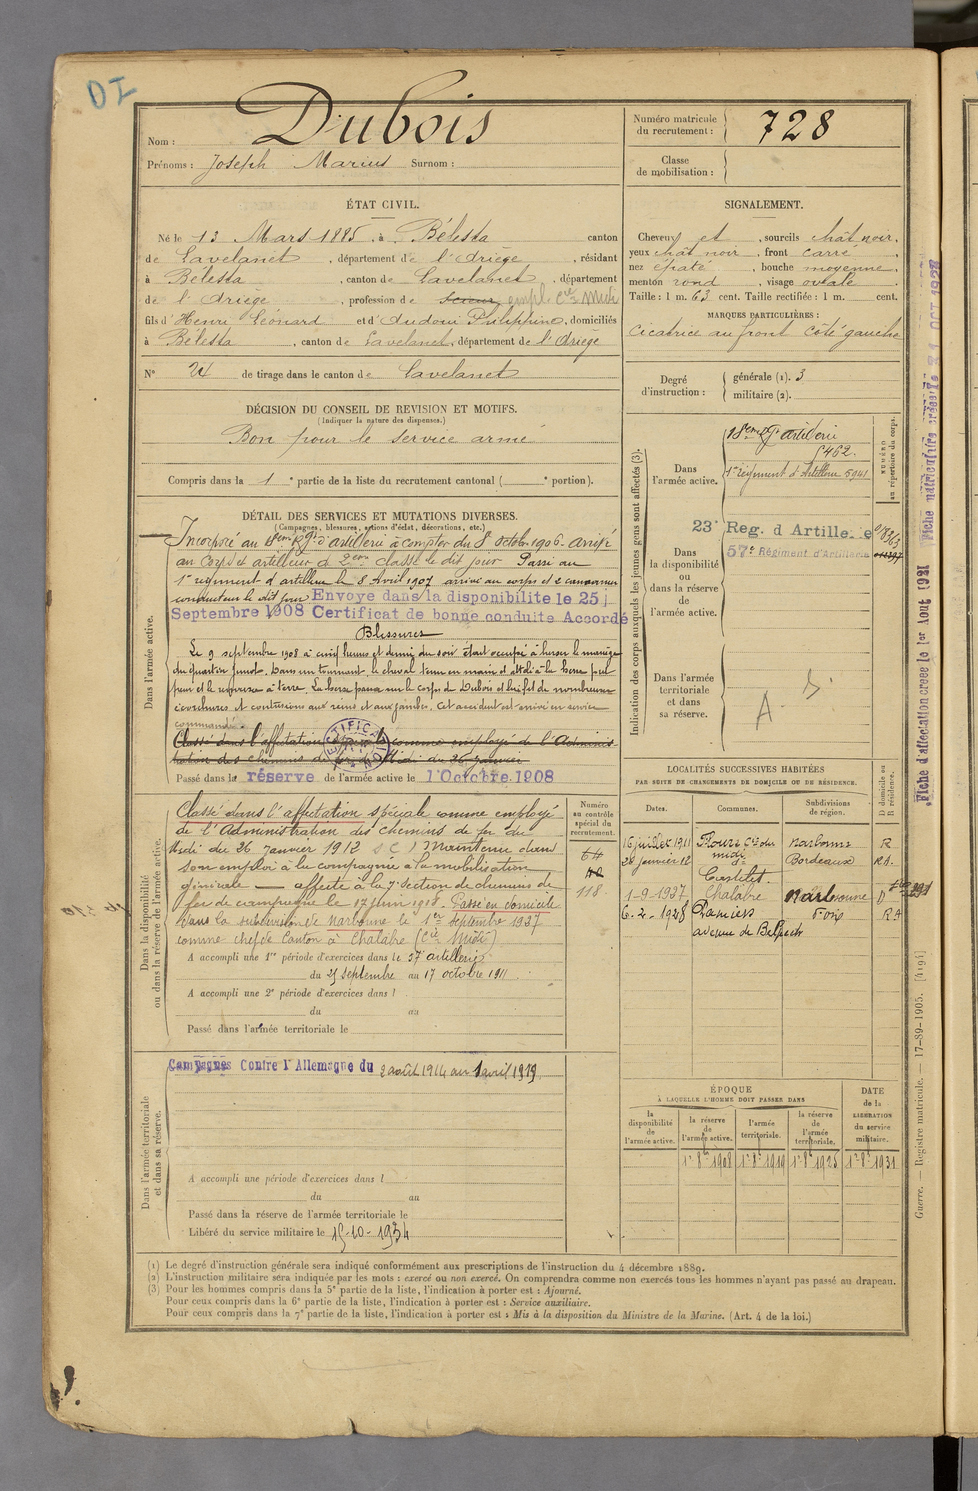 DI
Nom : Dubois
Prénoms : Joseph Marius Surnom :
Numéro matricule du recrutement : 728
Classe de mobilisation :
ÉTAT CIVIL.
Né le 13 Mars 1885, à Bélesta canton
de Lavelanet, département de l'Ariège, résidant
à Bélesta, canton de Lavelanet, département
de l'Ariège, profession de empl. Cie Midi
fils d'Henri Léonard et d'Audoui Philippine, domiciliés
à Bélesta, canton de Lavelanet, département de l'Ariège
N° 24 de tirage dans le canton de Lavelanet
SIGNALEMENT.
Cheveux et, sourcils chât noir,
yeux chât noir, front carré
nez épaté, bouche moyenne,
menton rond, visage ovale
Taille : 1 m. 63 cent. Taille rectifiée : 1 m. cent.
MARQUES PARTICULIÈRES :
Cicatrice au front côté gauche
Degré d'instruction : générale (1). 3
militaire (2).
DÉCISION DU CONSEIL DE REVISION ET MOTIFS.
(Indiquer la nature des dispenses.)
Bon pour le service armé
Compris dans la 1e partie de la liste du recrutement cantonal ( e portion).
DÉTAIL DES SERVICES ET MUTATIONS DIVERSES.
(Campagnes, blessures, actions d'éclat, décorations, etc.)
Dans l'armée active.
Incorporé au 18ème Rgt d'artillerie à compter du 8 octobre 1906. Arrivé
au Corps et artilleur de 2ème classe le dit jour Passé au
1er régiment d'artillerie le 8 Avril 1907 arrivé au corps et 2e canonnier
conducteur le dit jour Envoye dans la disponibilite le 25
Septembre 1908 Certificat de bonne conduite Accordé
Blessures
Le 9 septembre 1908 à cinq heures et demi du soir était occupé à herser le manège
du quartier Junot. Dans un tournant, le cheval tenu en main et attelé à la herse prit
peur et le renversa à terre. La herse passa sur le corps de Dubois et lui fit de nombreuses
écorchures et contusions aux reins et aux jambes. Cet accident est arrivé en service
commandé.
Classé dans l'affectation comme employé de l'Adminis
tration des chemins de fer du Midi du 26 janvier
RECTIFICATION
Passé dans la réserve de l'armée active le 1 Octobre 1908
Indication des corps auxquels les jeunes gens sont affectés (3).
NUMÉRO au répertoire du corps.
Dans l'armée active.
18eme Rgt artillerie
5462.
1er régiment d'Artillerie 5941
Dans la disponibilité ou dans la réserve de l'armée active.
23e Reg. d Artillerie
57e Régiment d'Artillerie
Dans l'armée territoriale et dans sa réserve.
A
Dans la disponibilité ou dans la réserve de l'armée active.
Classé dans l'affectation spéciale comme employé
de l'Administration des chemins de fer du
Midi du 26 Janvier 1912 S C 1 Maintenu dans
son emploi à la compagnie à la mobilisation
générale — affecté à la 7e section de chemins de
fer de campagne le 17 juin 1918. Passé en domicile
dans la subdivision de Narbonne le 1er septembre 1927
comme chef de Canton à Chalabre (Cie Midi)
A accompli une 1re période d'exercices dans le 57 artillerie
du 25 septembre au 17 octobre 1911
A accompli une 2e période d'exercices dans l
du au
Passé dans l'armée territoriale le
Numéro au contrôle spécial du recrutement.
64
118
LOCALITÉS SUCCESSIVES HABITÉES
PAR SUITE DE CHANGEMENTS DE DOMICILE OU DE RÉSIDENCE.
Dates. Communes. Subdivisions de région. D domicile ou R résidence.
16 juillet 1911 Cie des midi Narbonne R
28 janvier 12 Castillet Bordeaux RA.
1-9-1927 Chalabre Narbonne D
6-2-1928 Pamiers Foix RA
avenue de Belpech
Dans l'armée territoriale et dans sa réserve.
Campagnes Contre l'Allemagne du 2 août 1914 au 1 avril 1919
A accompli une période d'exercices dans l
du au
Passé dans la réserve de l'armée territoriale le
Libéré du service militaire le 15-10-1934
ÉPOQUE
À LAQUELLE L'HOMME DOIT PASSER DANS
la disponibilité de l'armée active.
la réserve de l'armée active.
l'armée territoriale.
la réserve de l'armée territoriale.
DATE de la LIBÉRATION du service militaire.
1er 8bre 1908 1er 8bre 1919 1er 8bre 1925 1er 8bre 1931
Fiche d'affectation créée le 1er Aout 1921 Fiche matriculaire créée le 31 OCT 1928
Guerre. — Registre matricule. — 17-89-1905. [4194]
(1) Le degré d'instruction générale sera indiqué conformément aux prescriptions de l'instruction du 4 décembre 1889.
(2) L'instruction militaire sera indiquée par les mots : exercé ou non exercé. On comprendra comme non exercés tous les hommes n'ayant pas passé au drapeau.
(3) Pour les hommes compris dans la 5e partie de la liste, l'indication à porter est : Ajourné.
Pour ceux compris dans la 6e partie de la liste, l'indication à porter est : Service auxiliaire.
Pour ceux compris dans la 7e partie de la liste, l'indication à porter est : Mis à la disposition du Ministre de la Marine. (Art. 4 de la loi.)